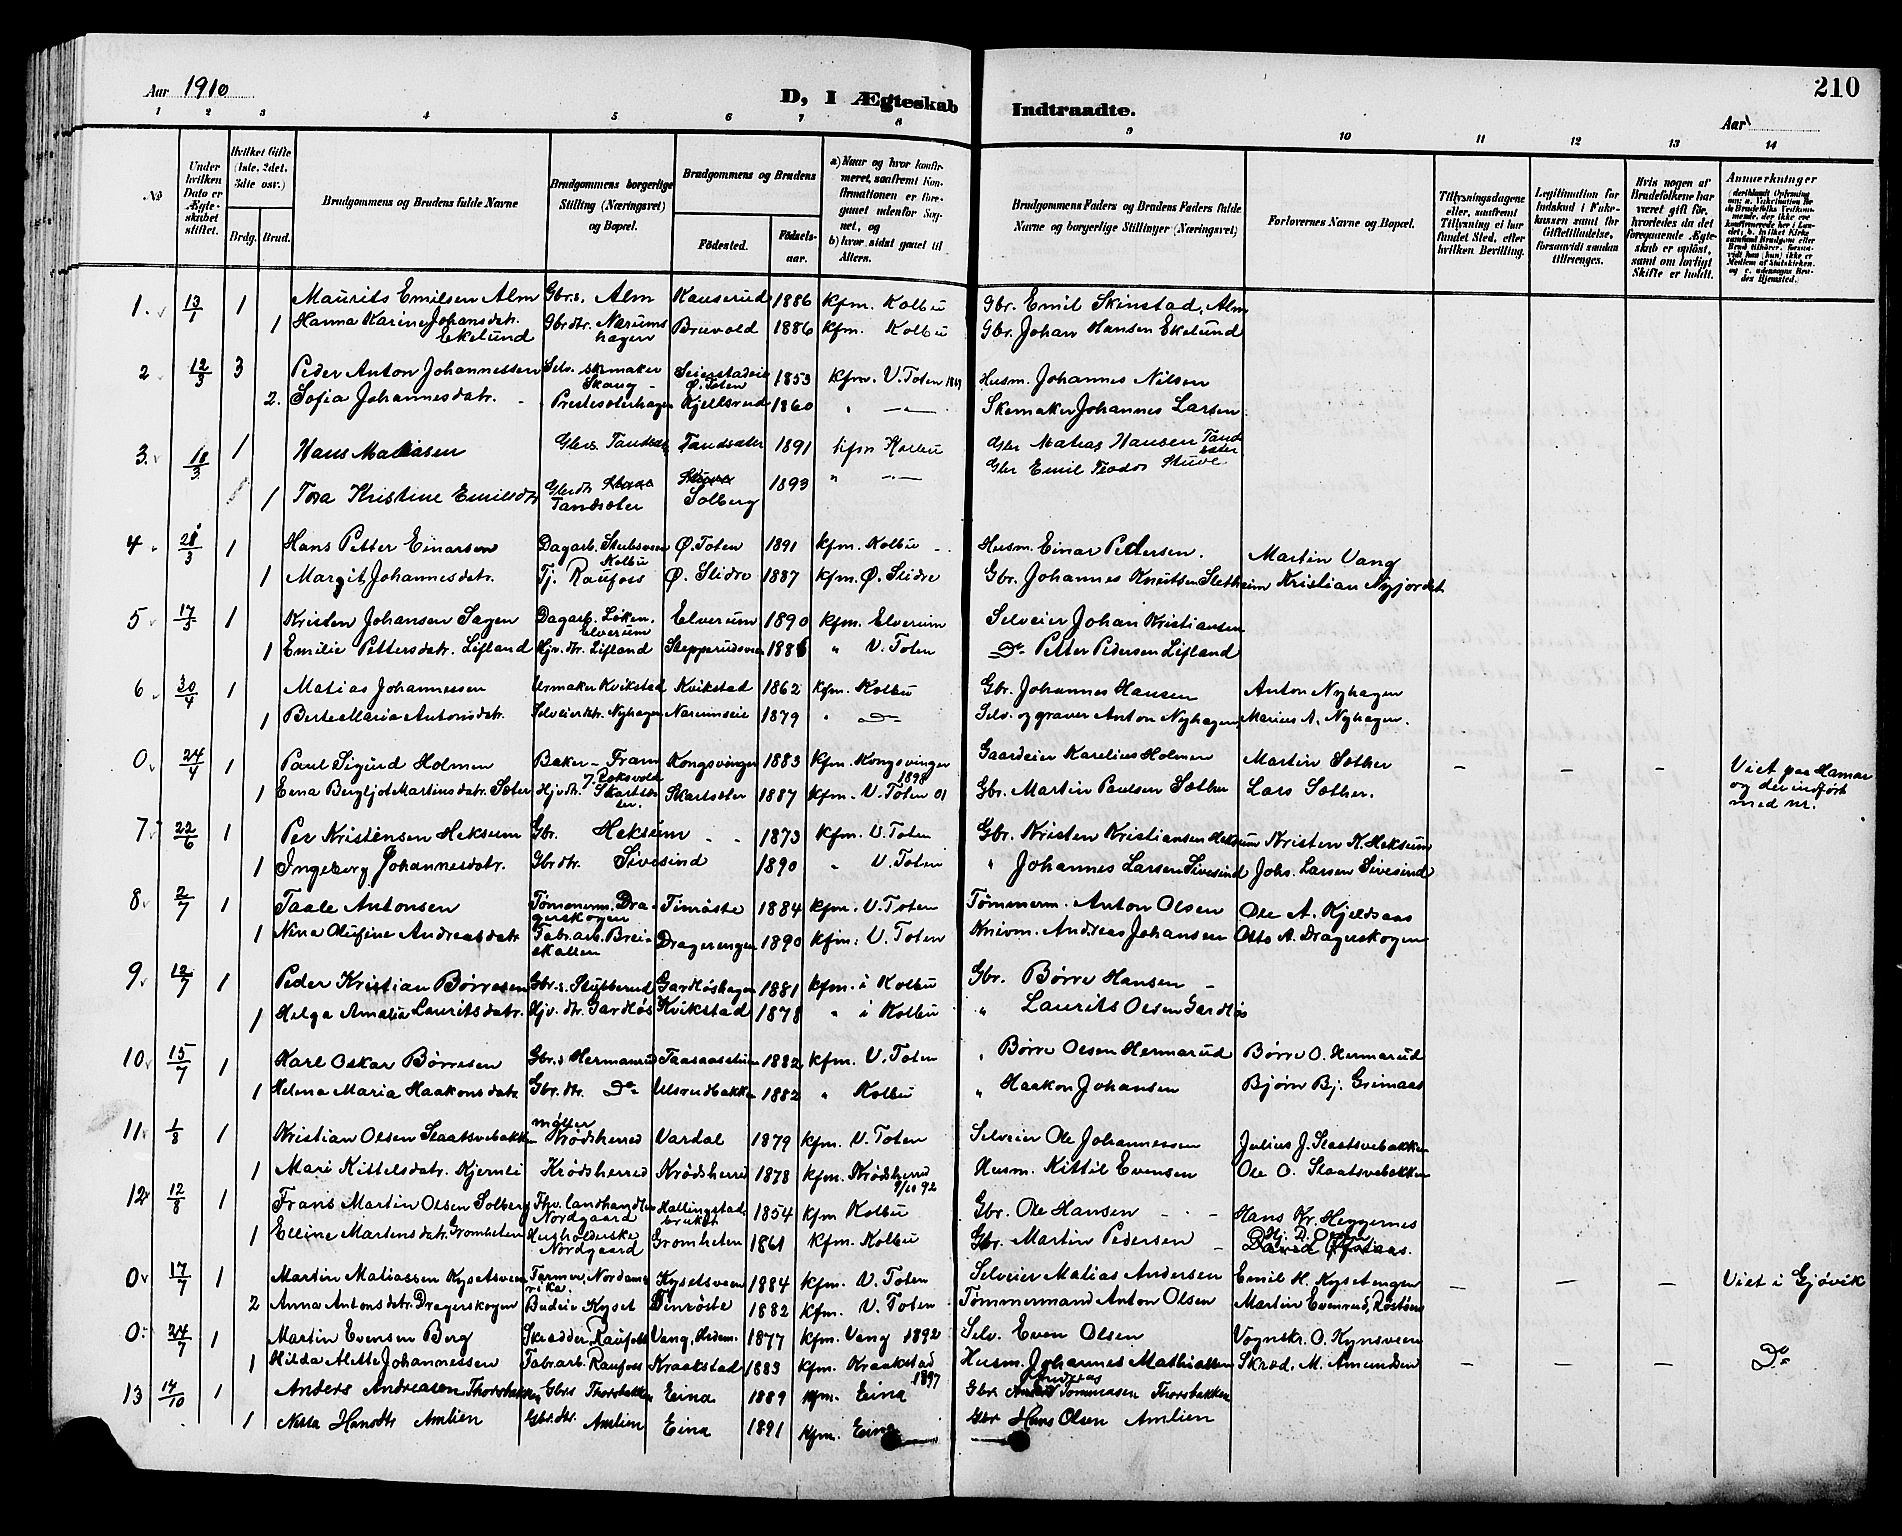 Aar 1910
D, I Ægteskab Indtraadte.
210
Aar
1 2 3 4 5 6 7 8 9 10 11 12 13 14
No
Under hvilken Dato er Ægteskabet stiftet.
Hvilket Gifte (1ste, 2det, 3die osv.)
Brdg. Brud.
Brudgommens og Brudens fulde Navne
Brudgommens borgerlige Stilling (Næringsvei) og Bopæl.
Brudgommens og Brudens
Fødested.
Fødselsaar.
a) Naar og hvor konfirmeret, saafremt Konfirmationen er foregaaet udenfor Sognet, og
b) hvor sidst gaaet til Alters.
Brudgommens Faders og Brudens Faders fulde Navne og borgerlige Stillinger (Næringsvei)
Forlovernes Navne og Bopæl.
Tillysningsdagene eller, saafremt Tillysning ei har fundet Sted, efter hvilken Bevilling.
Legitimation for Indskud i Enkekassen samt for Giftetilladelse, forsaavidt saadan tiltrænges.
Hvis nogen af Brudefolkene har været gift før, hvorledes da det foregaaende Ægteskab er opløst, samt om lovligt Skifte er holdt.
Anmærkninger
1. 13/1 1 Maurits Emilsen Alm Gbrs. Alm Kauserud 1886 kfm. Kolbu Gbr. Emil Skinstad, Alm
1 Hanna Karine Johansdatr. Ekelund Gbrdtr. Nærumshagen Bruvold 1886 kfm. Kolbu Gbr. Johan Hansen Ekelund
2 12/3 3 Peder Anton Johannessen Selv. skmaker Skaug Seierstadeie Ø. Toten 1853 kfm. V. Toten Husm. Johannes Nilsen
2. Sofia Johannesdatr. Prestesæterhagen Kjellsrud 1860 " — Skomaker Johannes Larsen
3. 18/3 1 Hans Matiasen Gbrs. Tandsæter Tandsæter 1891 kfm Kolbu Gbr Matias Hansen Tandsæter
1 Tora Kristine Emilsdtr Gbrdtr Tandsæter Solberg 1893 " — Gbr Emil Teodor Stuve
4 28/3 1 Hans Petter Einarsen Dagarb. Stubsveen Kolbu Ø. Toten 1891 kfm. Kolbu Husm. Einar Pedersen. Martin Vang
1 Margit Johannesdatr. Tj. Raufoss Ø. Slidre 1887 kfm. Ø. Slidre Gbr. Johannes Knutsen Sletheim Kristian Nyjordet
5 17/3 1 Kristen Johansen Sagen Dagarb. Løken Elverum Elverum 1890 kfm. Elverum Selveier Johan Kristiansen
1 Emilie Pettersdatr. Lifland Hjv. dtr. Lifland Stepperudsveen 1886 " V. Toten Do Petter Pedersen Lifland
6 30/4 1 Matias Johannessen Urmaker Kvikstad Kvikstad 1862 kfm. Kolbu Gbr. Johannes Hansen Anton Nyhagen
1 Berte Maria Antonsdatr. Selveierdtr. Nyhagen Nærumseie 1879 " Do Selv. og graver Anton Nyhagen, Marius A. Nyhagen.
0 24/4 1 Paul Sigurd Holmen Baker - Fram Kongsvinger 1883 kfm. Kongsvinger 1898 Gaardeier Karelius Holmen Martin Sæther — — — Viet paa Hamar og der indført med nr.
1 Erna Bergljot Martinsdatr. Sæter Hjv. dtr. Skartsæter Skartsæter 1887 kfm. V. Toten 01 Gbr. Martin Paulsen Sæther Lars Sæther.
7 22/6 1 Per Kristensen Heksum Gbr. Heksum 1873 kfm. V. Toten Gbr. Kristen Kristiansen Heksum Kristen K. Heksum
1 Ingeborg Johannesdatr. Gbrdtr. Sivesind 1890 " V. Toten " Johannes Larsen Sivesind Johs. Larsen Sivesind
8 2/7 1 Taale Antonsen Tømmerm. Dragerskogen Timøste 1884 kfm. V. Toten Tømmerm. Anton Olsen Ole A. Kjeldsaas
1 Nina Olufine Andreasdatr Fabr.arb. Breiskallen Dragerengen 1890 kfm. V. Toten Andreas Johansen Otto A. Dragerskogen
9 12/7 1 Peder Kristian Børresen Gbr.s. Stubberud Gardløshagen 1881 kfm. i Kolbu Gbr. Børre Hansen
1 Helga Amalia Lauritsdatr. Hjv. dtr. Gardløs Kvikstad 1878 " i Kolbu " Laurits Olsen Gardløs
10 15/7 1 Karl Oskar Børresen Gbr.s. Hermanrud Taasaasstuen 1882 kfm. V. Toten " Børre Olsen Hermarud Børre O. Hermarud
1 Helena Maria Haakonsdatr Gbr. dtr. Do Ulsrudbakken 1882 " Kolbu " Haakon Johansen Bjørn Bj. Grimaas
11 1/8 1 Kristian Olsen Slaatsvebakken møller Krødsherred Vardal 1879 kfm. V. Toten Selveier Ole Johannessen Julius J. Slaatsvebakken
1 Mari Kittelsdatr. Kjernli Krødsherred Krødsherred 1878 kfm. Krødsherred 9/10 92 Husm. Kittil Evensen Ole O. Slaatsvebakken
12 12/8 1 Frans Martin Olsen Solberg Fhv. landhandler Nordgaard Hallingstadbruket 1854 kfm Kolbu Gbr. Ole Hansen Hans Kr. Heggernes
1 Elline Martensdatr. Gromheten Husholderske Nordgaard Gromheten 1861 kfm. Kolbu Gbr. Martin Pedersen
0 17/7 1 Martin Matiassen Kysetsveen Farmer, Nordamerika. Kysetsveen 1884 kfm. V. Toten Selveier Matias Andersen Emil H. Kysetengen — — — Viet i Gjøvik
2 Anna Antonsdatr. Dragerskogen Budeie Kyset Timøste 1882 kfm. V. Toten Tømmermand Anton Olsen Martin Evenrud, Røstøen
0 24/7 1 Martin Evensen Berg Skrædder, Raufoss Vang, Hedem. 1877 kfm. Vang 1892 Selv. Even Olsen Vognstr. O. Kynsveen
1 Hilda Alette Johannessen Fabr.arb. Raufoss Kraakstad 1883 kfm. Kraakstad 1897 Husm. Johannes Mathiassen Skræd. M. Amundsen — — — Do
13 14/10 1 Anders Andreasen Thorsbakken Gbrs Thorsbakken Eina 1889 kfm. Eina Gbr Andreas Tommasen Thorsbakken
1 Netta Hansdtr Amlien Gbr.dtr. Amlien Eina 1891 kfm. Eina Gbr Hans Olsen Amlien